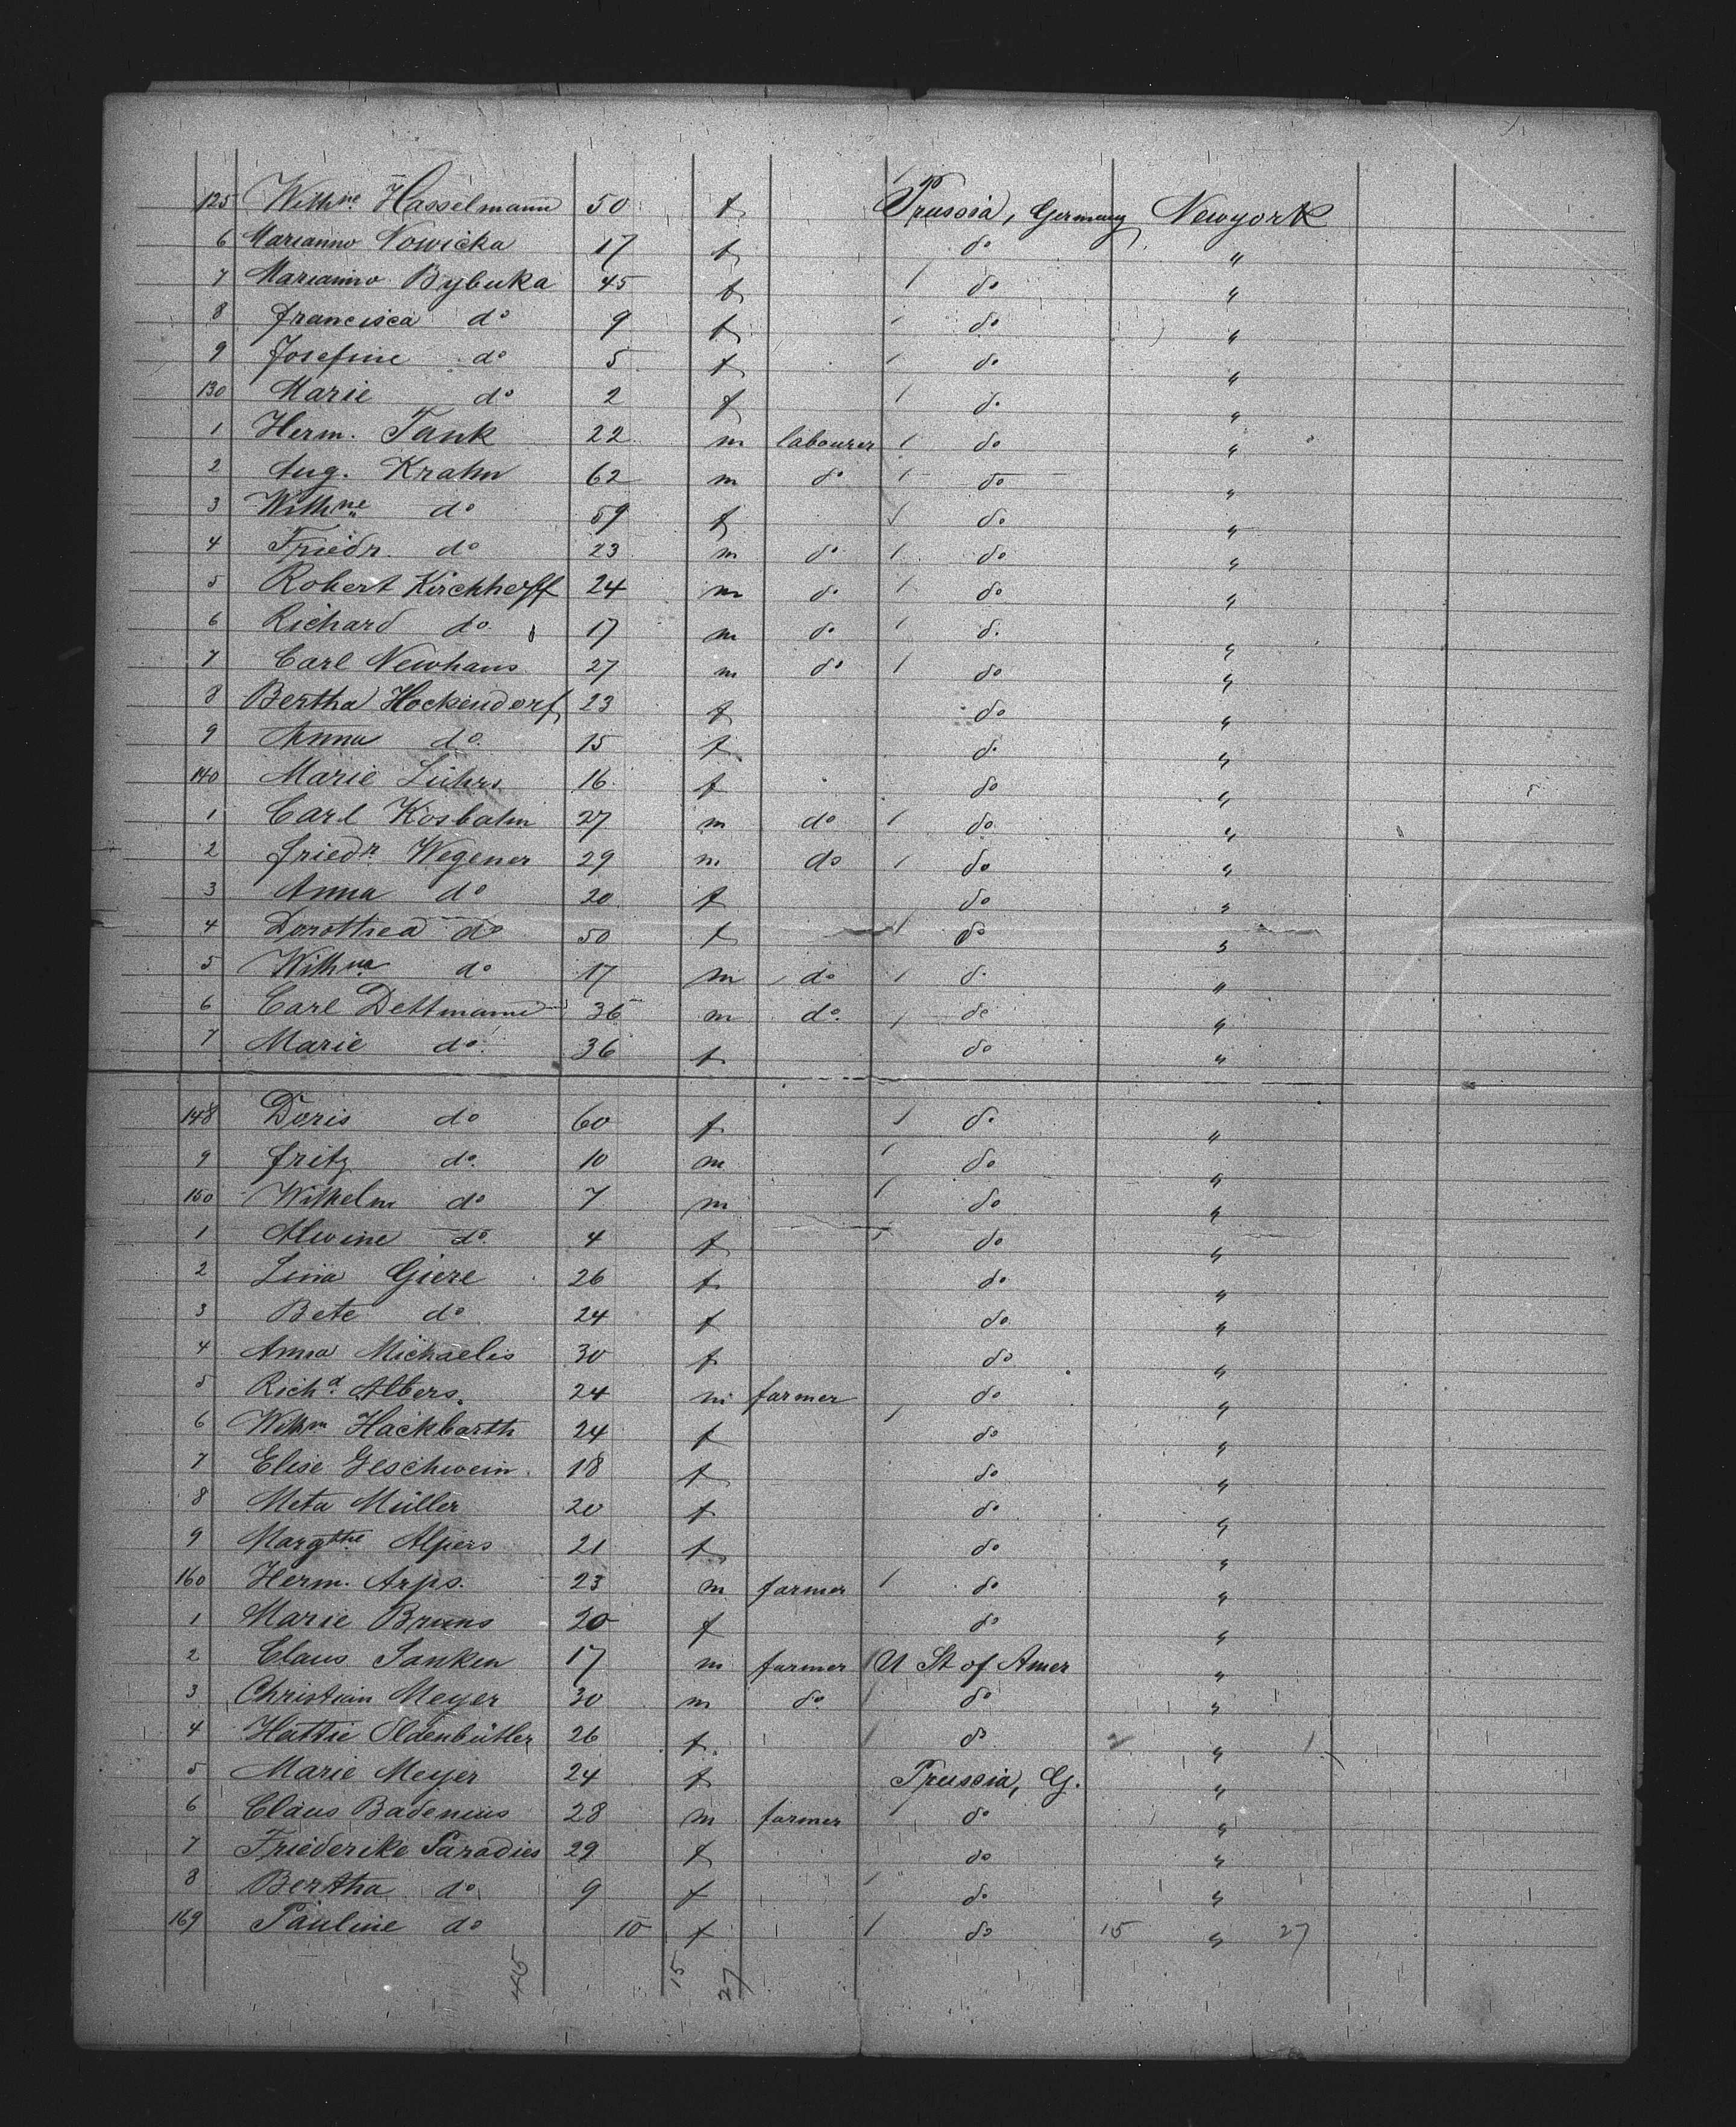 125 Wilhne Hasselmann 50 f Prussia, Germany Newyork
6 Marianno Nowicka 17 f do "
7 Marianno Bybuka 45 f 1 do "
8 Francisca do 9 f 1 do "
9 Josefine do 5 f 1 do "
130 Marie do 2 f 1 do "
1 Herm. Tank 22 m labourer 1 do "
2 Aug. Krahn 62 m do 1 do "
3 Wilhne do 59 f 1 do "
4 Friedr. do 23 m do 1 do "
5 Robert Kirchhoff 24 m do 1 do "
6 Richard do 17 m do 1 do "
7 Carl Newhaus 27 m do 1 do "
8 Bertha Hockendorf 23 f do "
9 Anna do 15 f do "
140 Marie Lührs 16 f do "
1 Carl Kosbahn 27 m do 1 do "
2 Friedr Wegener 29 m do 1 do "
3 Anna do 20 f do "
4 Dorothea do 50 f 1 do "
5 do 17 m do 1 do "
6 Carl Dettmann 36 m do 1 do "
7 Marie do 36 f do "
148 Doris do 60 f 1 do "
9 Fritz do 10 m 1 do "
150 Wilhelm do 7 m 1 do "
1 Alwine do 4 f 1 do "
2 Lina Giere 26 f do "
3 Bete do 24 f do "
4 Anna Michaelis 30 f do "
5 Richd Albers 24 m farmer do "
6 Wilhm Hackbarth 24 f 1 do "
7 Elise Geschwein 18 f do "
8 Meta Müller 20 f do "
9 Margthe Alpers 21 f do "
160 Herm. Arps. 23 m farmer 1 do "
1 Marie Bruns 20 f do "
2 Claus Janken 17 m farmer 1 U St of Amer "
3 Christian Meyer 30 m do 1 do "
4 Hattie 26 f 1 do "
5 Marie Meyer 24 f Prussia, G. "
6 Claus Badenius 28 m farmer 1 do "
7 Friederike Paradies 29 f do "
8 Bertha do 9 f 1 do "
169 Pauline do 10 f 1 do 15 " 27
45 15 27